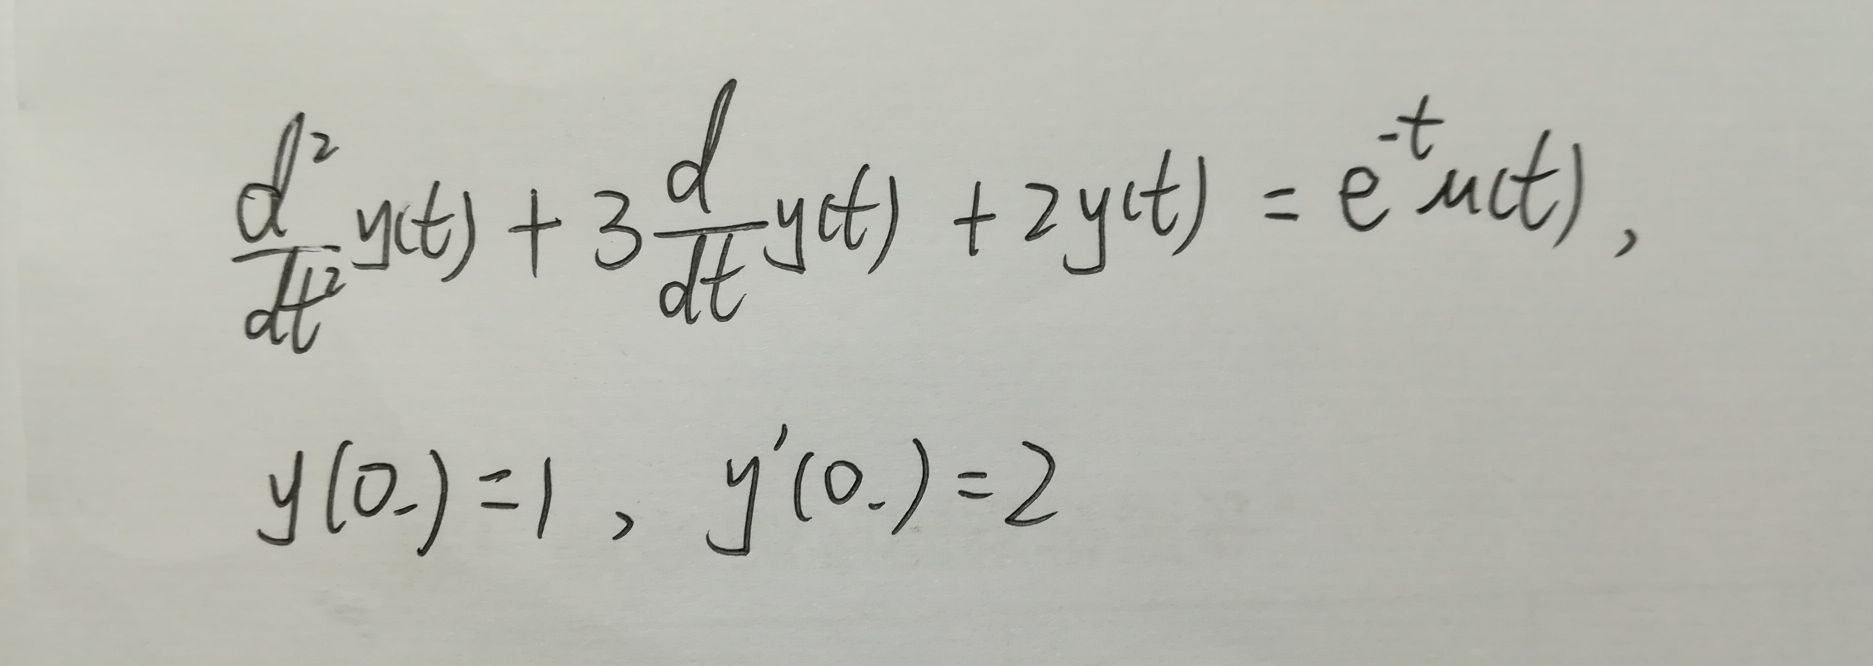 d²/dt² y(t) + 3 d/dt y(t) + 2y(t) = e^{-t}u(t),
y(0₋)=1, y′(0₋)=2